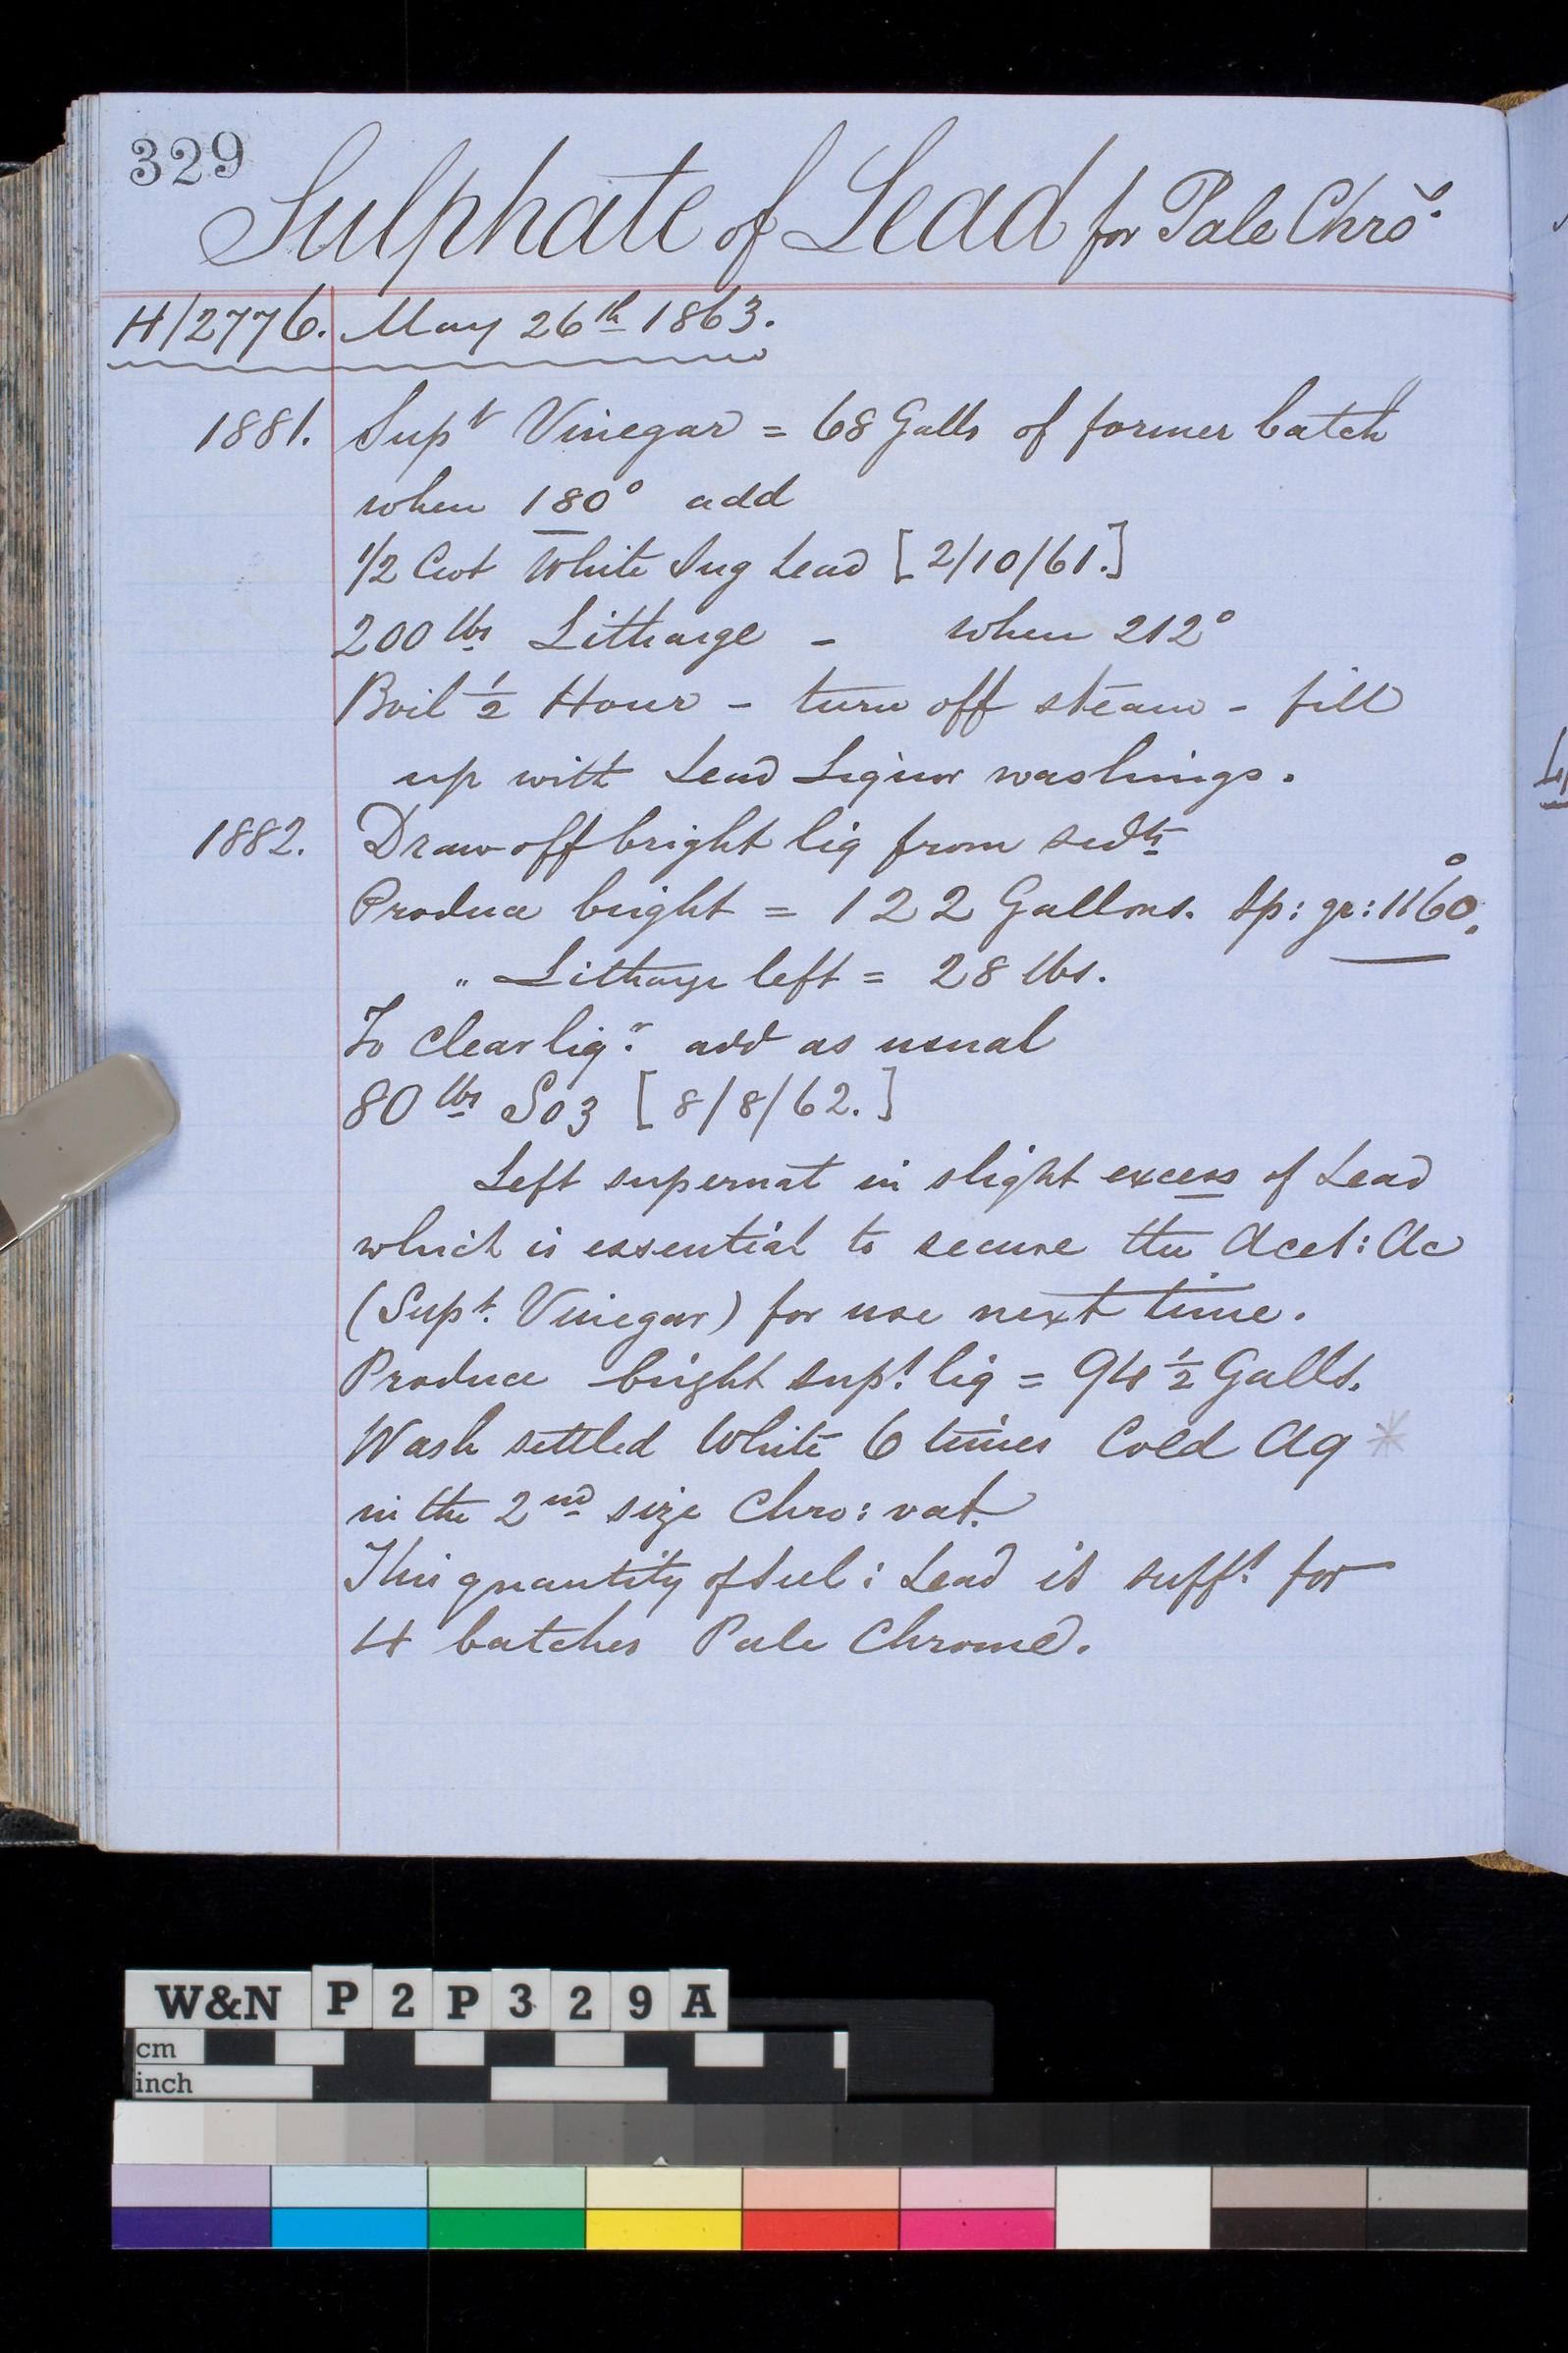 329
Sulphate of Lead for Pale Chro.
H/2776. May 26th 1863.
1881. Supt Vinegar = 68 Galls of former batch
when 180° add
1/2 Cwt White Sug Lead [2/10/61.]
200 lbs Litharge - when 212°
Boil 1/2 Hour - turn off steam - fill
up with Lead Liquor washings.
1882. Draw off bright liq from sedts
Produce bright = 122 Gallons. Sp: gr: 1160°.
" Litharge left = 28 lbs.
To Clear liqr. add as usual
80 lbs SO3 [8/8/62.]
Left supernat in slight excess of Lead
which is essential to secure the Acet: Ac
(Supt. Vinegar) for use next time.
Produce bright supt. liq = 94 1/2 Galls.
Wash settled White 6 times Cold Aq *
in the 2nd size Chro: vat.
This quantity of Sul: Lead is sufft. for
4 batches Pale Chrome.
W&N P2P329A
cm
inch